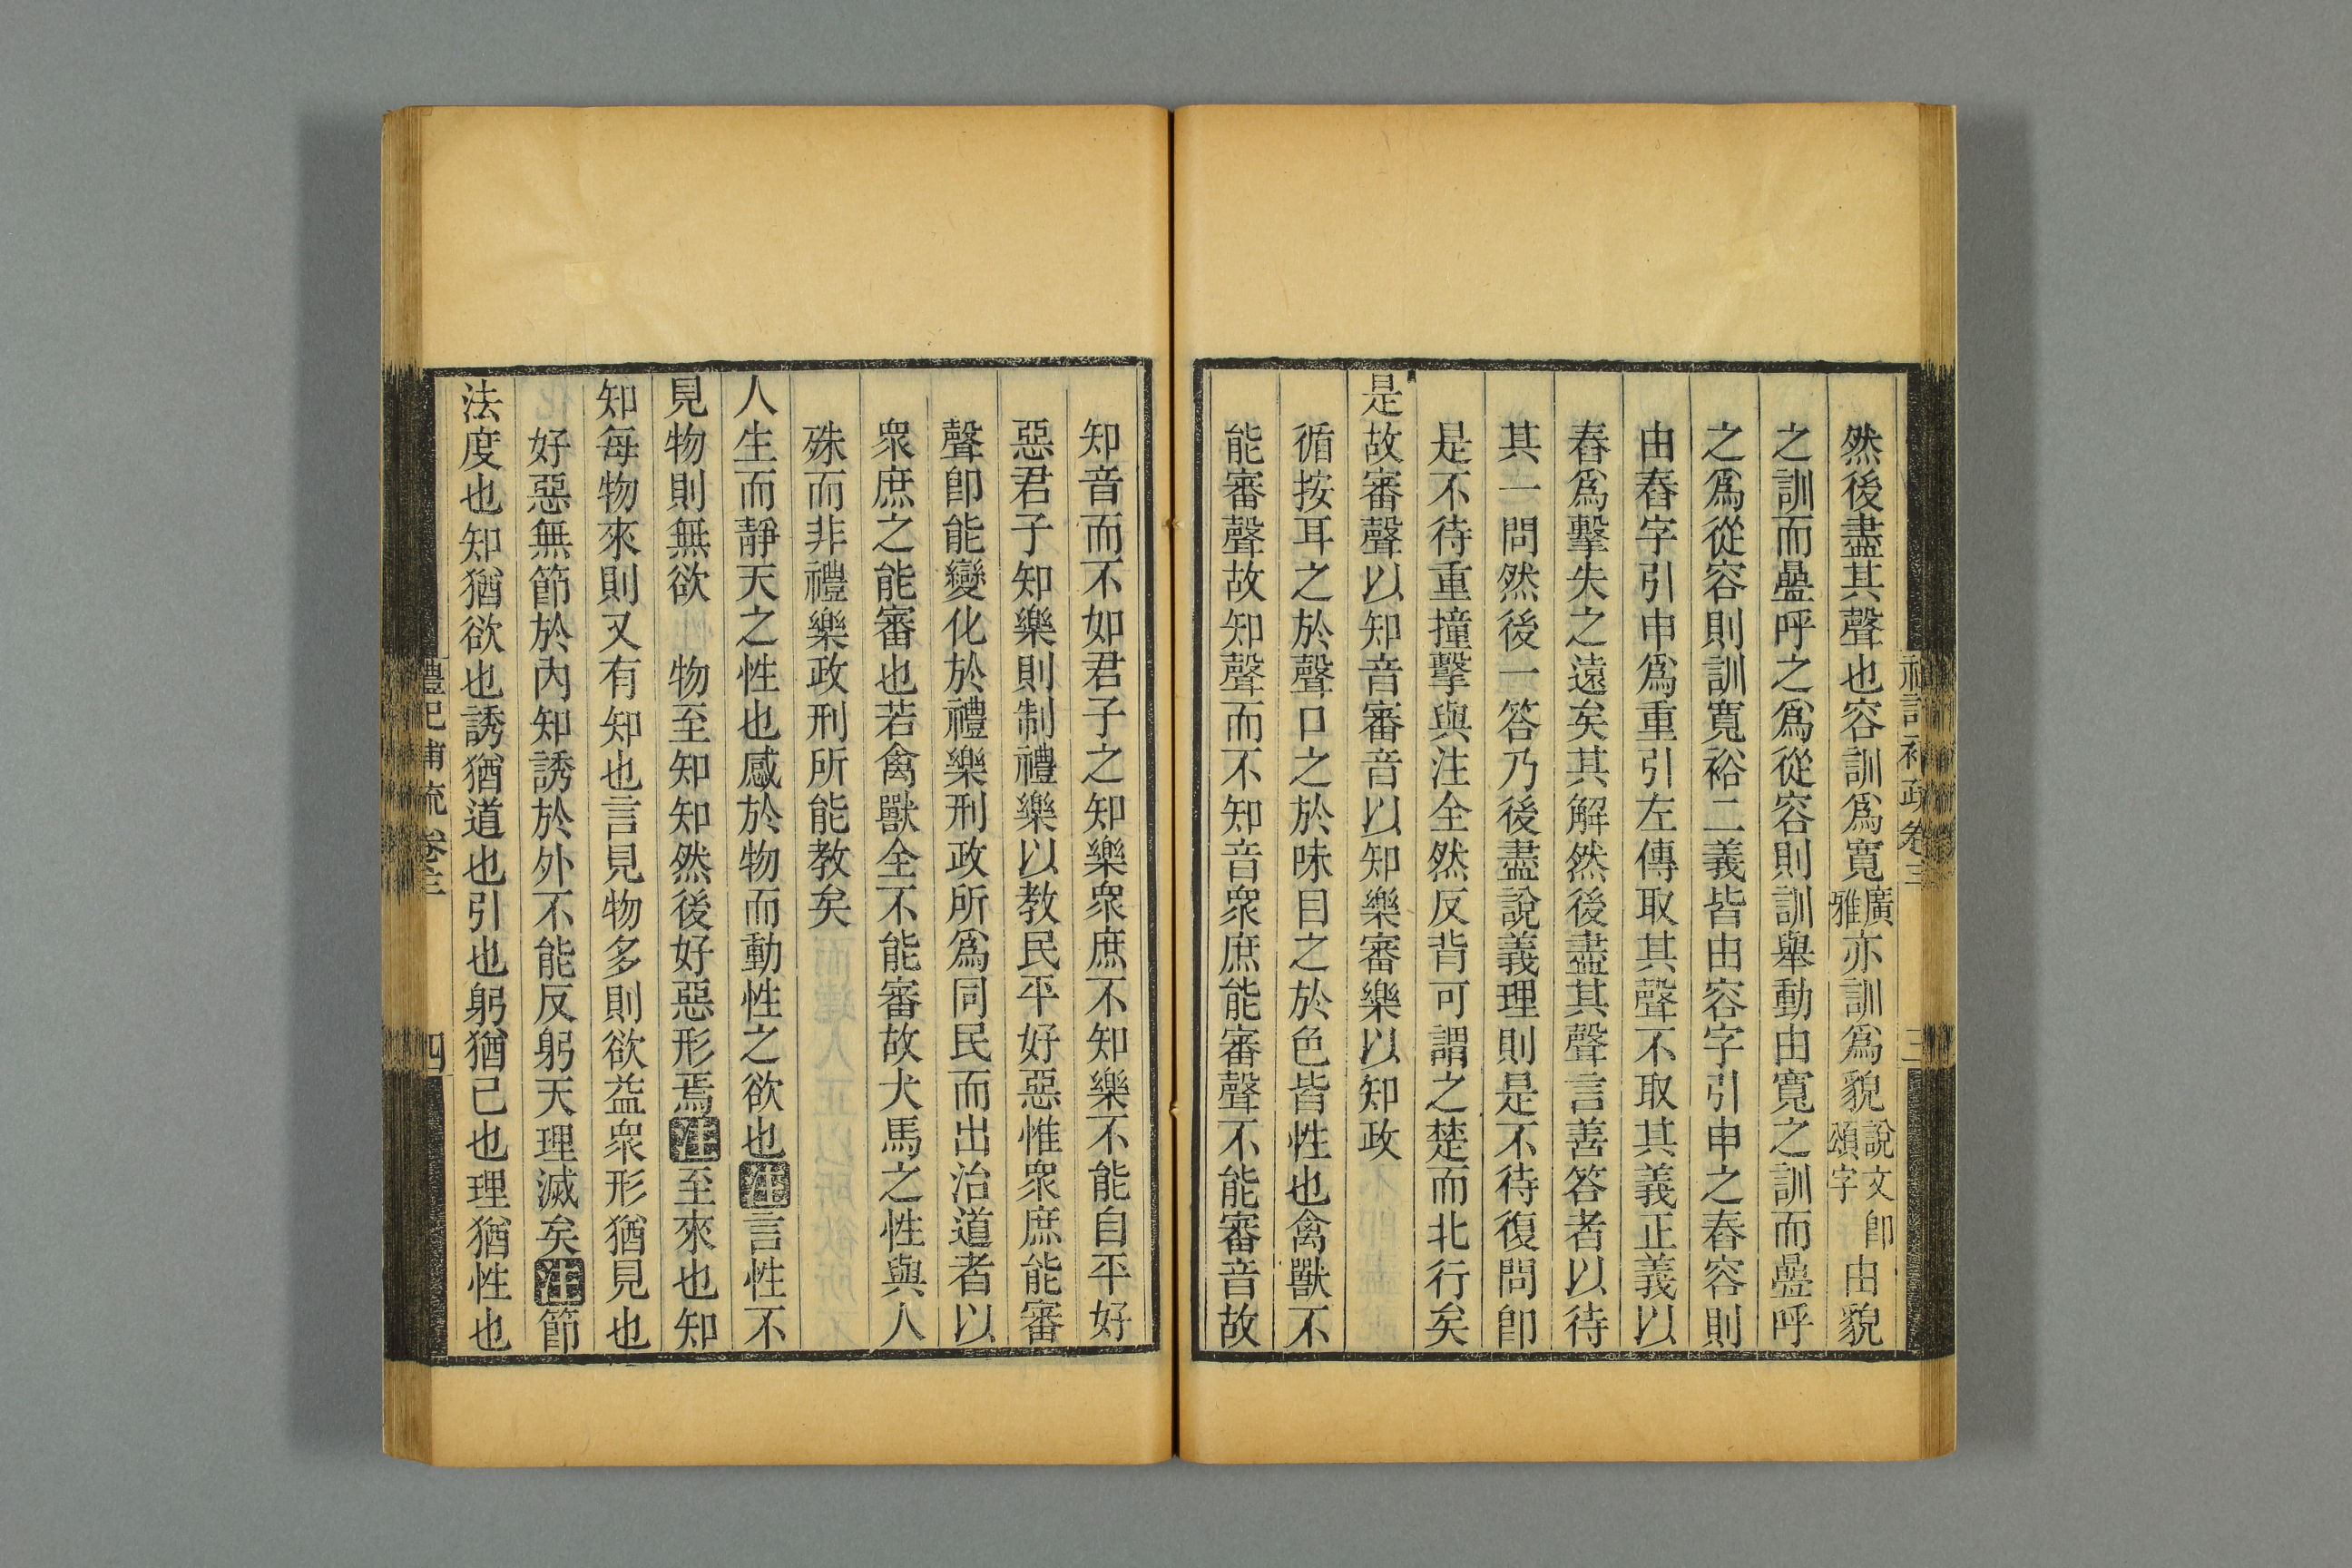 禮記補疏卷三
三
然後盡其聲也容訓爲寬廣雅亦訓爲貌說文頌字卽由貌
之訓而㬪呼之爲從容則訓舉動由寬之訓而㬪呼
之爲從容則訓寬裕二義皆由容字引申之舂容則
由舂字引申爲重引左傳取其聲不取其義正義以
舂爲擊失之遠矣其解然後盡其聲言善答者以待
其一問然後一答乃後盡說義理則是不待復問卽
是不待重撞擊與注全然反背可謂之楚而北行矣
是故審聲以知音審音以知樂審樂以知政
循按耳之於聲口之於味目之於色皆性也禽獸不
能審聲故知聲而不知音衆庶能審聲不能審音故
知音而不如君子之知樂衆庶不知樂不能自平好
惡君子知樂則制禮樂以教民平好惡惟衆庶能審
聲卽能變化於禮樂刑政所爲同民而出治道者以
衆庶之能審也若禽獸全不能審故犬馬之性與人
殊而非禮樂政刑所能教矣
人生而靜天之性也感於物而動性之欲也注言性不
見物則無欲 物至知知然後好惡形焉注至來也知
知每物來則又有知也言見物多則欲益衆形猶見也
好惡無節於內知誘於外不能反躬天理滅矣注節
法度也知猶欲也誘猶道也引也躬猶己也理猶性也
禮記補疏卷三
四